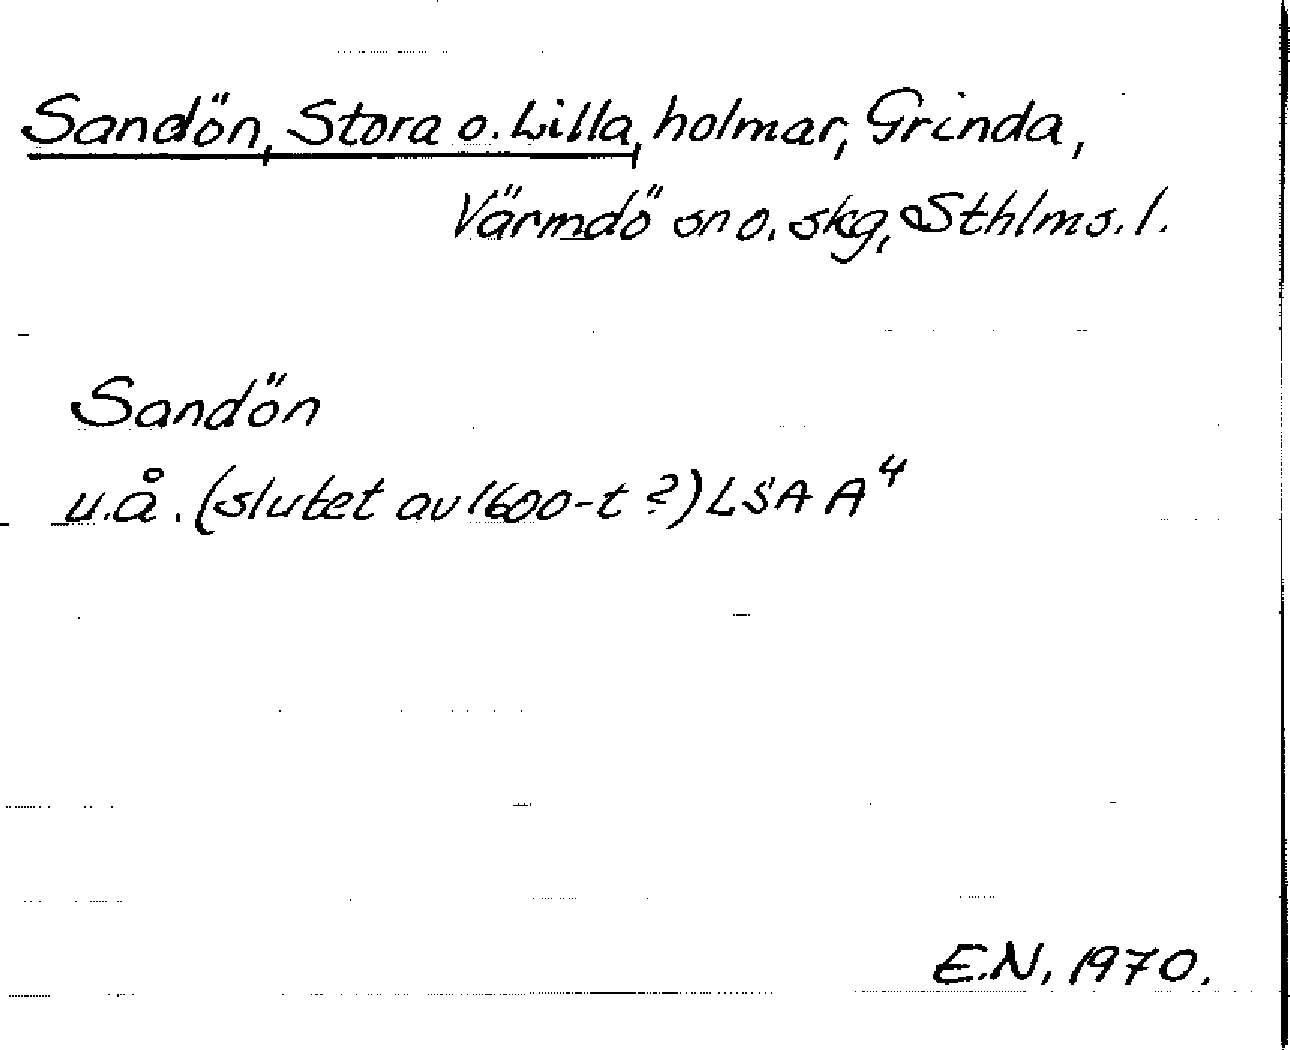 Sandön, Stora o. Lilla, holmar, Grinda,
Värmdö sn o. skg, Sthlms. l.
Sandön
u.å. (slutet av 1600-t ?) LSA A⁴
E.N, 1970.